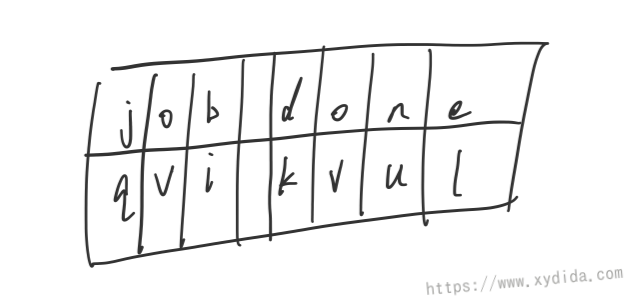 job done
qvi kvul
https://www.xydida.com